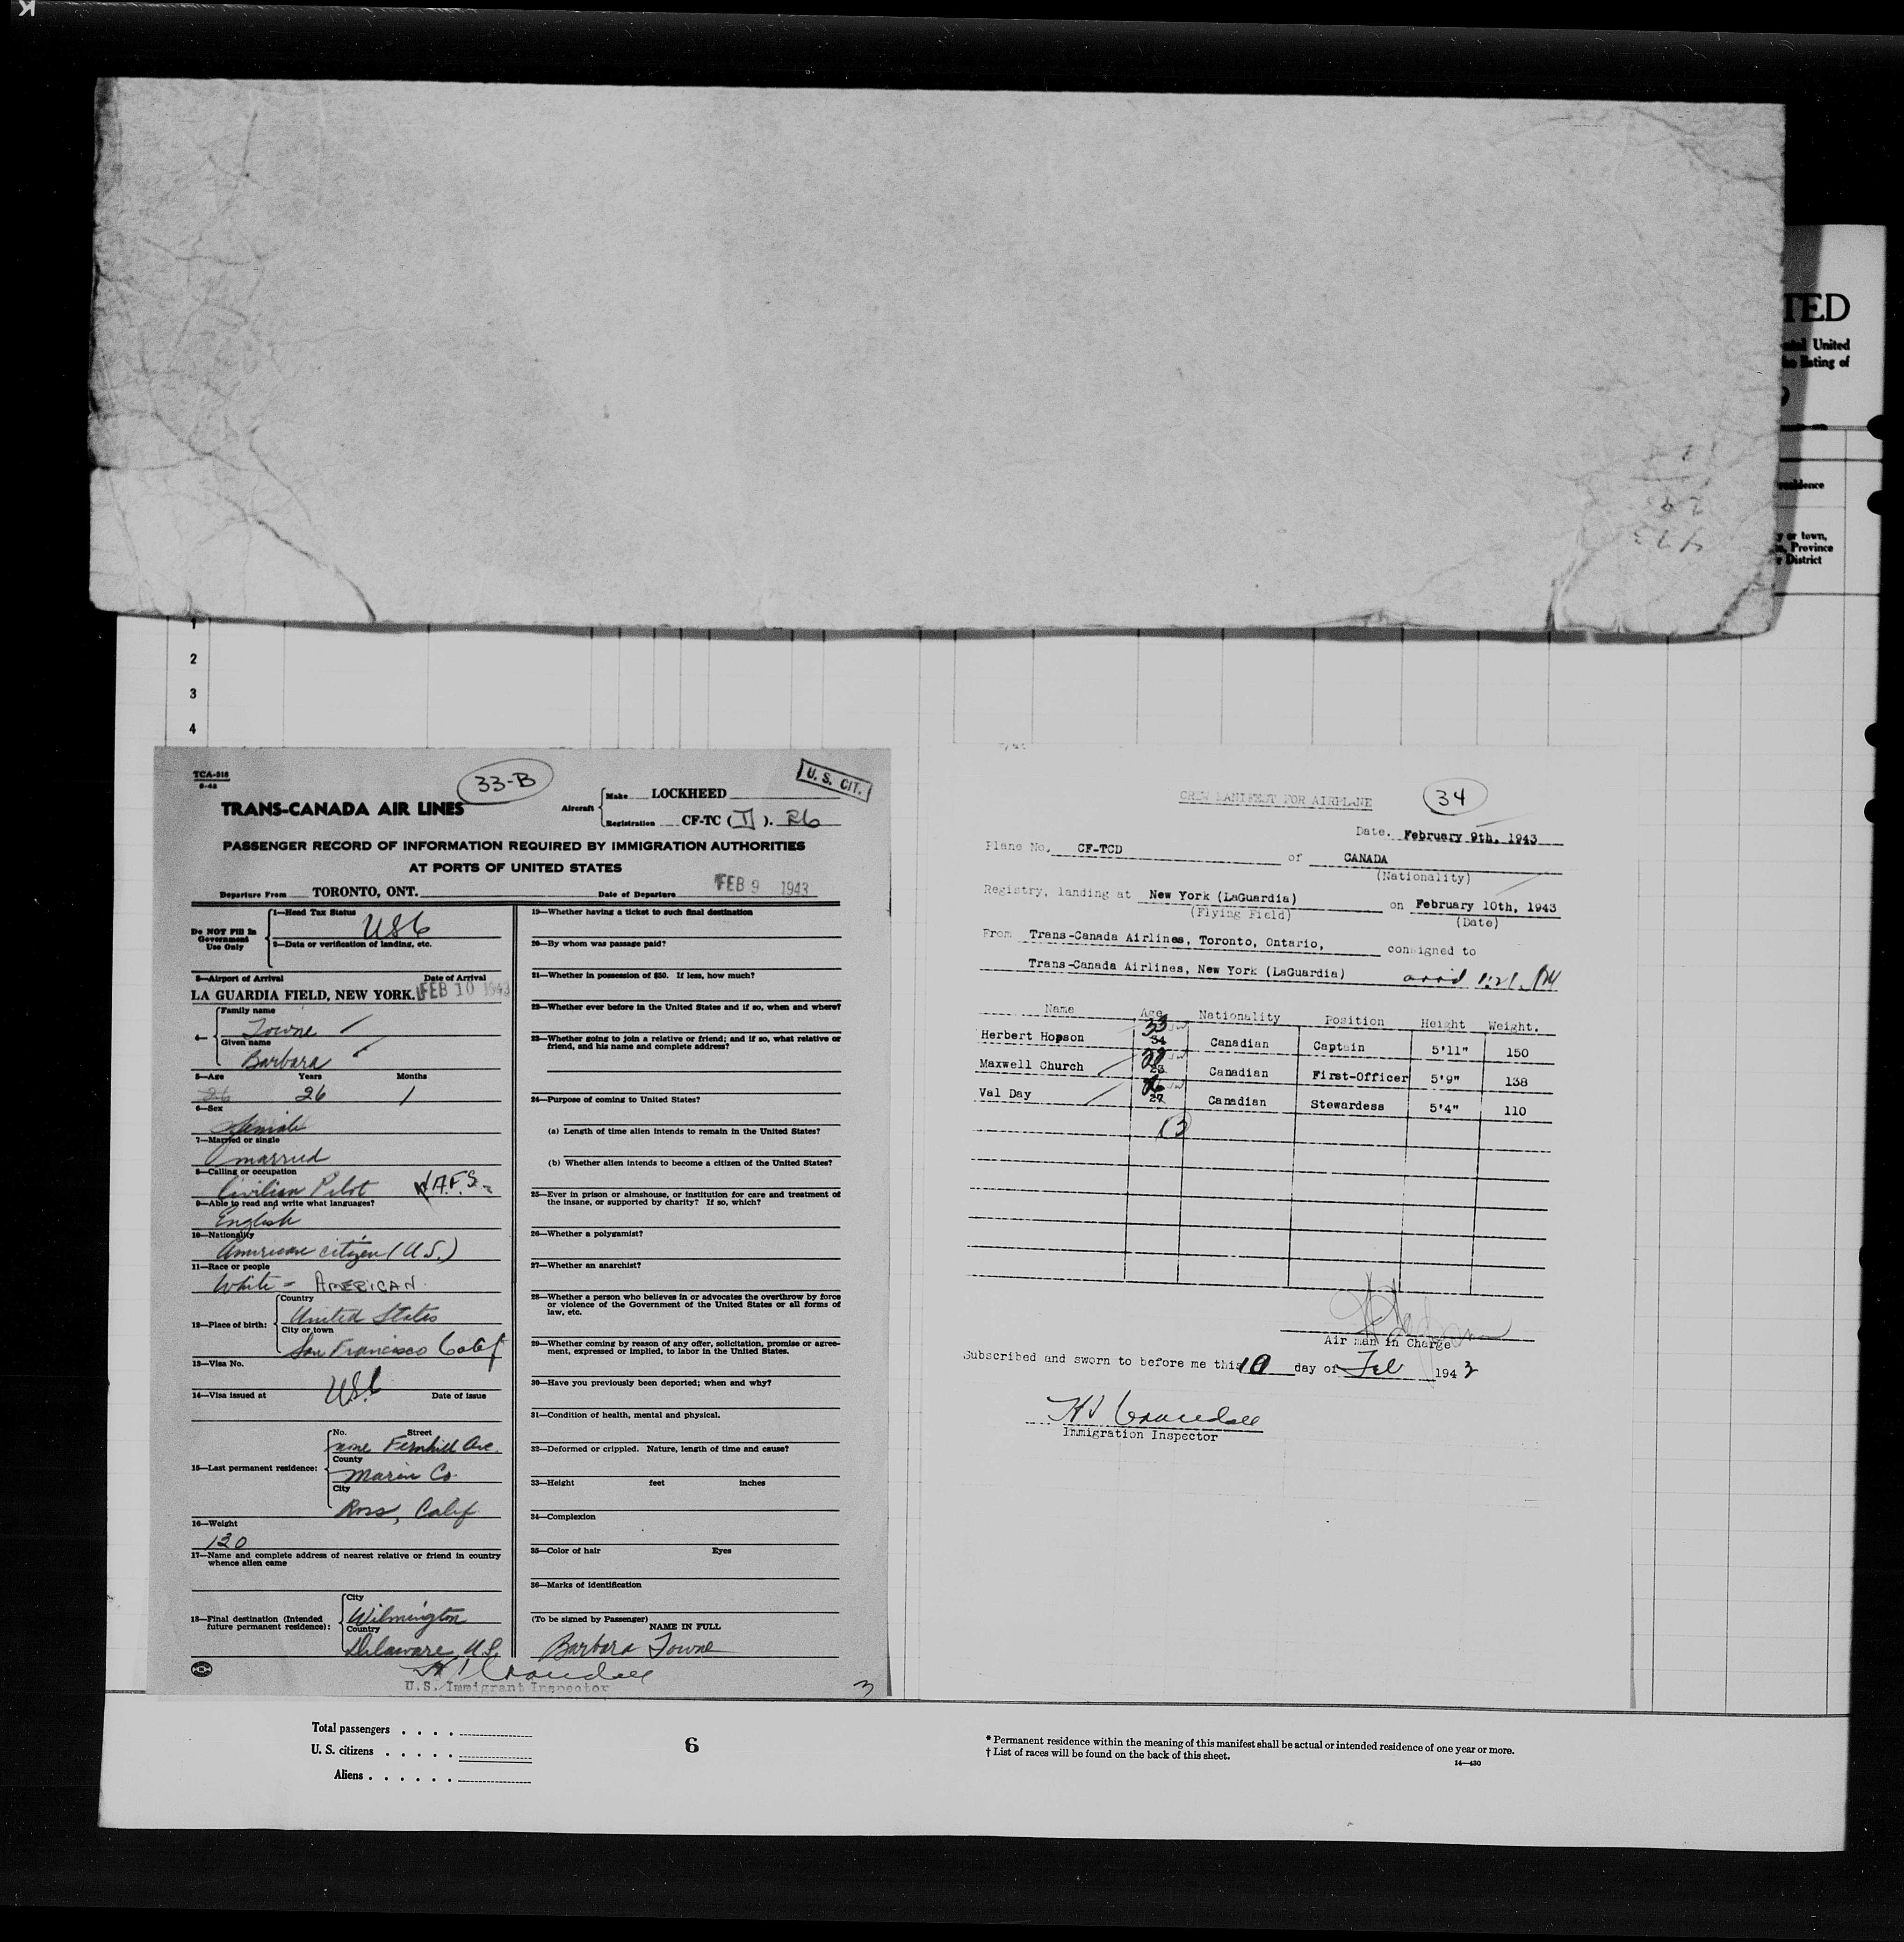 TED
United
listing of
residence
y or town,
Province
District
1
2
3
4
TCA-518
33-B
U. S. CIT.
TRANS-CANADA AIR LINES
Aircraft
Make LOCKHEED
Registration CF-TC ( ). 26
PASSENGER RECORD OF INFORMATION REQUIRED BY IMMIGRATION AUTHORITIES
AT PORTS OF UNITED STATES
Departure From TORONTO, ONT. Date of Departure FEB 9 1943
Do NOT Fill In Government Use Only
1—Head Tax Status
USC
2—Data or verification of landing, etc.
3—Airport of Arrival Date of Arrival
LA GUARDIA FIELD, NEW YORK. FEB 10 1943
4—
Family name
Towne
Given name
Barbara
5—Age Years Months
26 26 1
6—Sex
Female
7—Married or single
married
8—Calling or occupation
Civilian Pilot W.A.F.S.
9—Able to read and write what languages?
English
10—Nationality
American citizen (U.S.)
11—Race or people
White - AMERICAN.
12—Place of birth:
Country
United States
City or town
San Francisco Calif
13—Visa No.
USC
14—Visa issued at Date of issue
15—Last permanent residence:
No. Street
none Fernhill Ave.
County
Marin Co.
City
Ross, Calif.
16—Weight
130
17—Name and complete address of nearest relative or friend in country
whence alien came
18—Final destination (Intended
future permanent residence):
City
Wilmington
Country
Delaware, U.S.
19—Whether having a ticket to such final destination
20—By whom was passage paid?
21—Whether in possession of $50. If less, how much?
22—Whether ever before in the United States and if so, when and where?
23—Whether going to join a relative or friend; and if so, what relative or
friend, and his name and complete address?
24—Purpose of coming to United States?
(a) Length of time alien intends to remain in the United States?
(b) Whether alien intends to become a citizen of the United States?
25—Ever in prison or almshouse, or institution for care and treatment of
the insane, or supported by charity? If so, which?
26—Whether a polygamist?
27—Whether an anarchist?
28—Whether a person who believes in or advocates the overthrow by force
or violence of the Government of the United States or all forms of
law, etc.
29—Whether coming by reason of any offer, solicitation, promise or agree-
ment, expressed or implied, to labor in the United States.
30—Have you previously been deported; when and why?
31—Condition of health, mental and physical.
32—Deformed or crippled. Nature, length of time and cause?
33—Height feet inches
34—Complexion
35—Color of hair Eyes
36—Marks of identification
(To be signed by Passenger)
NAME IN FULL
Barbara Towne
U.S. Immigrant Inspector
3
CREW MANIFEST FOR AIRPLANE
34
Date. February 9th, 1943
Plane No. CF-TCD of CANADA
(Nationality)
Registry, landing at New York (LaGuardia) on February 10th, 1943
(Flying Field) (Date)
From Trans-Canada Airlines, Toronto, Ontario, consigned to
Trans-Canada Airlines, New York (LaGuardia) arr'd 1:21 AM
Name Age Nationality Position Height Weight.
Herbert Hopson 33 34 Canadian Captain 5'11" 150
Maxwell Church 23 Canadian First-Officer 5'9" 138
Val Day 26 27 Canadian Stewardess 5'4" 110
Air man in Charge
Subscribed and sworn to before me this 10 day of Feb 1943
Immigration Inspector
Total passengers . . . .
U. S. citizens . . . . .
Aliens . . . . . .
6
* Permanent residence within the meaning of this manifest shall be actual or intended residence of one year or more.
† List of races will be found on the back of this sheet.
14—430